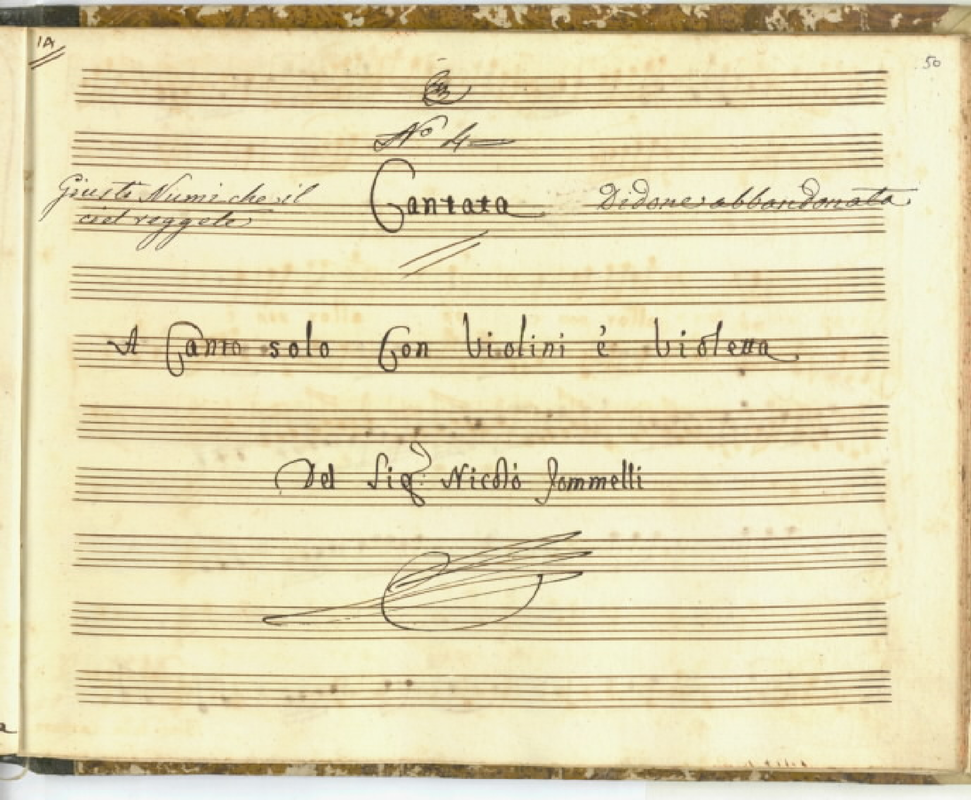 14
50
N.º 4
Giusti Numi che il
ciel reggete
Cantata
Didone abbandonata
A Canto solo Con Violini è Violetta
Del Sigʳ: Nicolò Jommelli